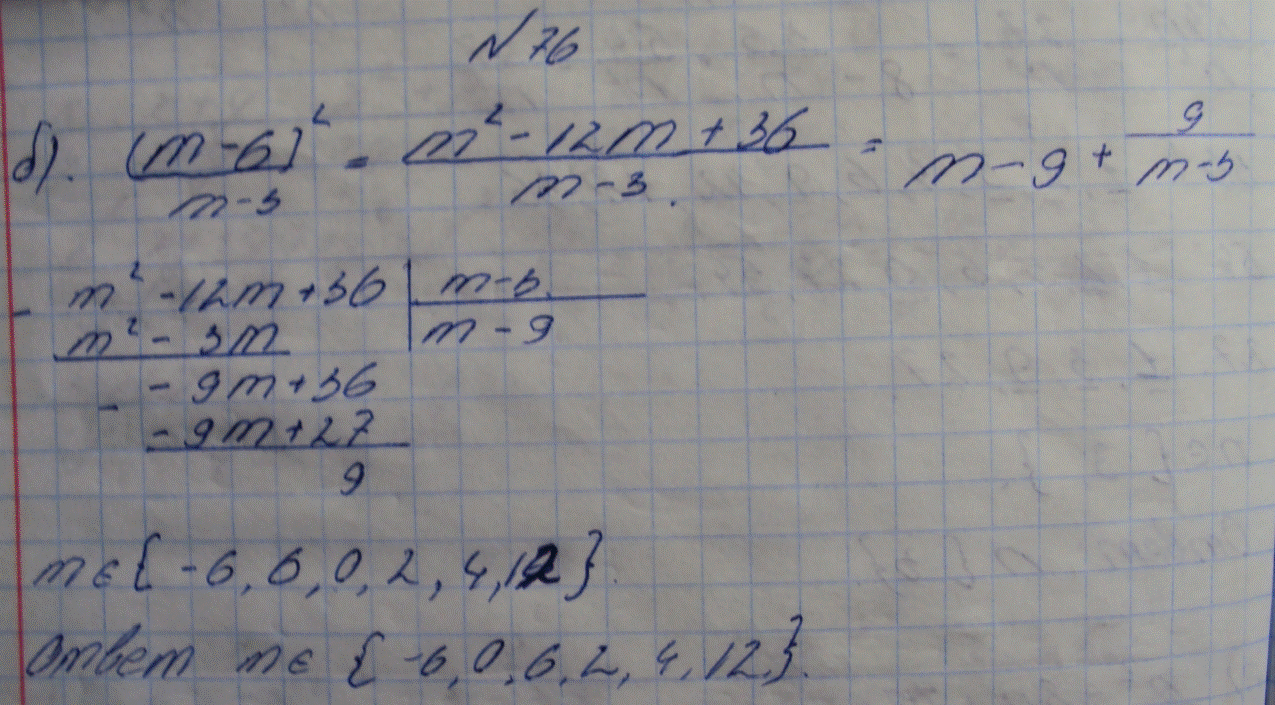 №76
б). (m-6)² / m-3 = m² - 12m + 36 / m-3. = m - 9 + 9 / m-3
- m² - 12m + 36 | m-3.
m² - 3m | m - 9
- - 9m + 36
- 9m + 27
9
m ∈ { -6, 6, 0, 2, 4, 12 }.
Ответ m ∈ { -6, 0, 6, 2, 4, 12 }.